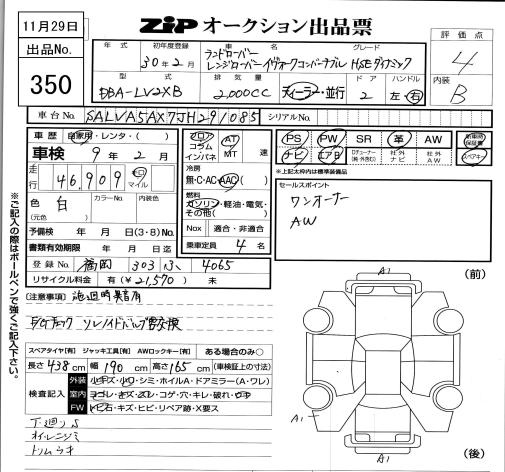 11月29日
ZIP オークション出品票
出品No.
350
評価点
4
内装
B
年式
初年度登録
30年2月
車名
ランドローバー
レンジローバーイヴォークコンバーチブル
グレード
HSEダイナミック
型式
DBA-LV2XB
排気量
2,000CC
ディーラー・並行
ドア
2
ハンドル
左・右
車台No.
SALVA5AX7JH291085
シリアルNo.
車歴
自家用・レンタ・( )
車検
9年2月
走行
46,909
キロ
マイル
色
白
(元色 )
カラーNo.
内装色
予備検
年 月 日(3・8)No.
書類有効期限
年 月 日迄
登録No.
福岡 303 ふ 4065
リサイクル料金
有(¥21,570) 未
フロア
コラム
インパネ
AT
MT
速
冷房
無・C・AC・AAC
燃料
ガソリン・軽油・電気・
その他( )
Nox
適合・非適合
乗車定員
4名
PS
PW
SR
革
AW
新車時
保証書
ナビ
エアB
社外
ナビ
社外
AW
※上記太枠内は標準装備品
セールスポイント
ワンオーナー
AW
※ご記入の際はボールペンで強くご記入下さい。
(注意事項)
ソレノイドバルブ要交換
スペアタイヤ[有] ジャッキ工具[有] AWロックキー[有] ある場合のみ○
長さ438cm 幅190cm 高さ165cm (車検証上の寸法)
検査記入
外装
小キズ・小凹・シミ・ホイルA・ドアミラー(A・ワレ)
室内
ヨゴレ・キズ・スレ・コゲ・穴・キレ・破れ・ウキ
FW
トビ石・キズ・ヒビ・リペア跡・X要ス
下廻りS
オイルニジミ
トリムウキ
A1
(前)
A1
A1
(後)